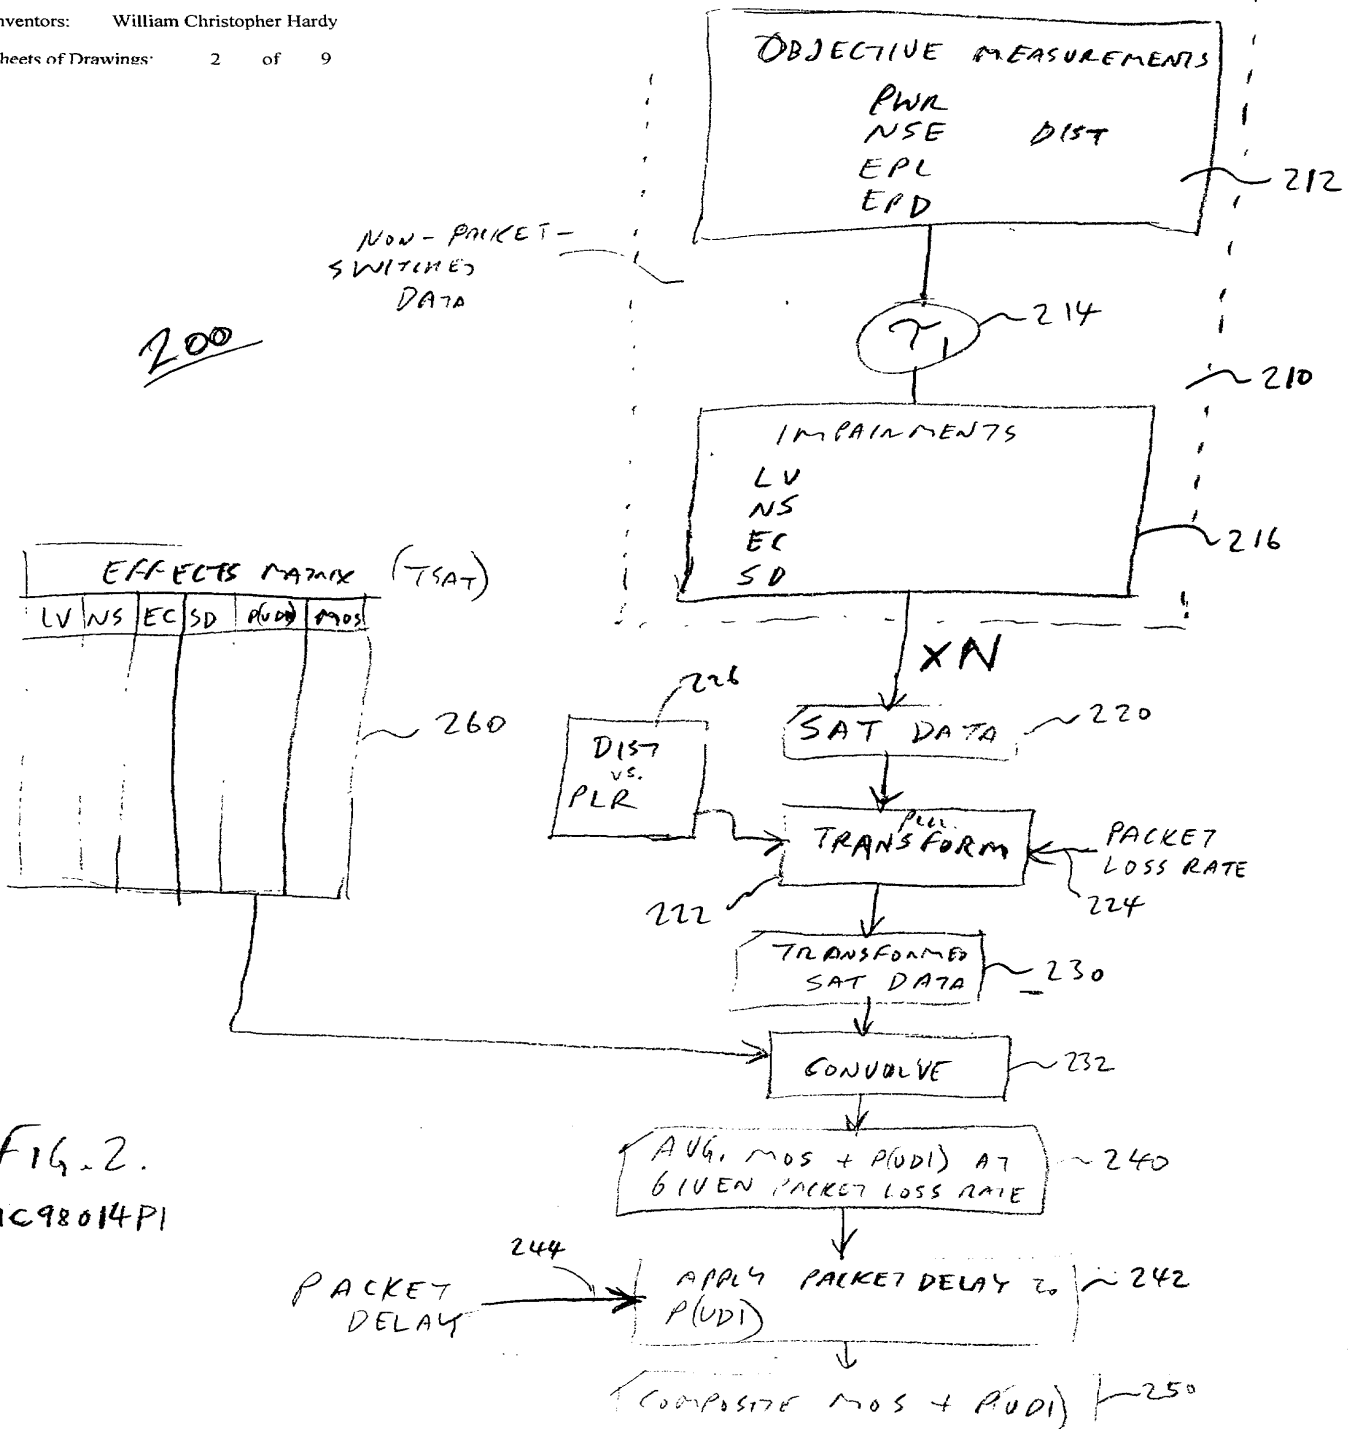 nventors: William Christopher Hardy
heets of Drawings: 2 of 9
OBJECTIVE MEASUREMENTS
PWR
NSE DIST
EPL
EPD
212
NON-PACKET-
SWITCHED
DATA
200
T1
214
210
IMPAIRMENTS
LV
NS
EC
SD
216
EFFECTS MATRIX (TSAT)
LV NS EC SD P(UDI) MOS
260
XN
226
SAT DATA
220
DIST
vs.
PLR
TRANSFORM
PACKET
LOSS RATE
222
224
TRANSFORMED
SAT DATA
230
CONVOLVE
232
FIG. 2.
1C98014P1
AVG. MOS + P(UDI) AT
GIVEN PACKET LOSS RATE
240
244
PACKET
DELAY
APPLY PACKET DELAY to
P(UDI)
242
COMPOSITE MOS + P(UDI)
250